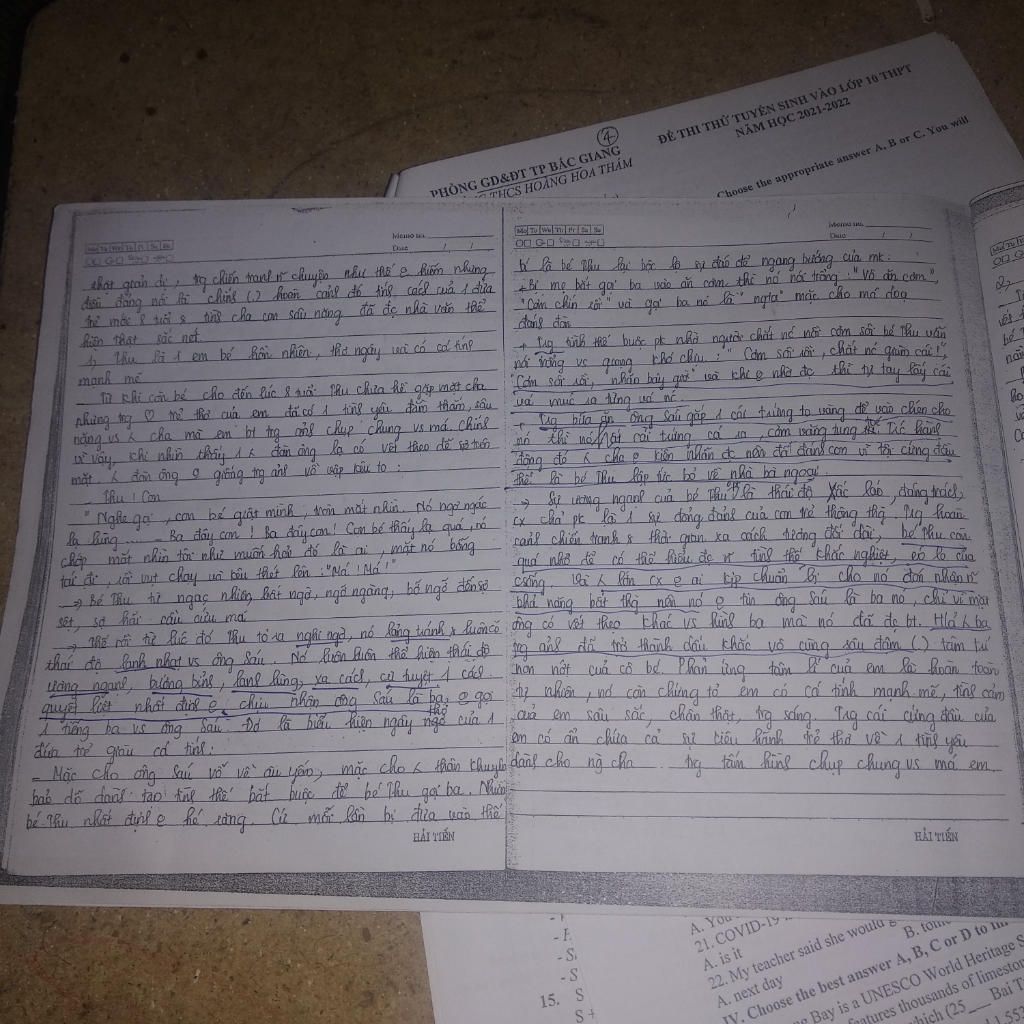 PHÒNG GD&ĐT TP BẮC GIANG
THCS HOÀNG HOA THÁM
4
ĐỀ THI THỬ TUYỂN SINH VÀO LỚP 10 THPT
NĂM HỌC 2021-2022
Choose the appropriate answer A, B or C. You will
Mo Tu We Th Fr Sa Su
Memo no.
Date / /
thật giản dị, trg chiến tranh
điều đáng nói là chính (.) hoàn cảnh đó tính cách của 1 đứa
trẻ mới 8 tuổi & tình cha con sâu nặng đã đc nhà văn thể
hiện thật sắc nét.
1, Thu là 1 em bé hồn nhiên, thơ ngây và có cá tính
mạnh mẽ
Từ khi còn bé cho đến lúc 8 tuổi Thu chưa hề gặp mặt cha
nhưng trg ♡ trẻ thơ của em đã có 1 tình yêu đằm thắm, sâu
nặng vs cha mà em bt trg ảnh chụp chung vs má. Chính
vì vậy, khi nhìn thấy 1 đàn ông lạ có vết thẹo dễ sợ trên
mặt, đàn ông giống trg ảnh vồ vập kêu to :
- Thu ! Con
" Nghe gọi, con bé giật mình, tròn mắt nhìn. Nó ngơ ngác
lạ lùng ...... Ba đây con ! Ba đây con ! Con bé thấy lạ quá, nó
chớp mắt nhìn tôi như muốn hỏi đó là ai, mặt nó bỗng
tái đi, rồi vụt chạy và kêu thét lên : "Má ! Má !"
→ Bé Thu từ ngạc nhiên, bất ngờ, ngỡ ngàng, bỡ ngỡ đến sợ
sệt, sợ hãi cầu cứu má
Thế rồi từ lúc đó Thu tỏ ra nghi ngờ, nó lảng tránh & luôn có
thái độ lạnh nhạt vs ông Sáu. Nó luôn luôn thể hiện thái độ
ương ngạnh, bướng bỉnh, lạnh lùng, xa cách, cự tuyệt 1 cách
quyết liệt nhất định chịu nhận ông Sáu là ba, gọi
1 tiếng ba vs ông Sáu. Đó là biểu hiện ngây thơ của 1
đứa trẻ giàu cá tính :
- Mặc cho ông Sáu vỗ về âu yếm, mặc cho thân khuyên
bảo dỗ dành tạo tình thế bắt buộc để bé Thu gọi ba. Nhưng
bé Thu nhất định hé răng. Cứ mỗi lần bị đưa vào thế
HẢI TIẾN
Mo Tu We Th Fr Sa Su
Memo no.
Date / /
bí là bé Thu lại bộc lộ sự đáo để ngang bướng của mk :
+ Bị mẹ bắt gọi ba vào ăn cơm thì nó nói trổng : "Vô ăn cơm",
"Cơm chín rồi" và gọi ba nó là "ngta" mặc cho má dọa
đánh đòn
+ Trg tình thế buộc pk nhờ người chắt nc nồi cơm sôi bé Thu vẫn
nói trổng vs giọng khó chịu : " Cơm sôi rồi, chắt nc giùm cái !",
"Cơm sôi rồi, nhão bây giờ" và khi nhờ đc thì tự tay lấy cái
vá múc ra từng vá nc.
+, Trg bữa ăn ông Sáu gắp 1 cái trứng to vàng để vào chén cho
nó thì nó hất cái trứng cá ra, cơm văng tung tóe. Trc hành
động đó cha kiên nhẫn đc nên đã đánh con vì tội cứng đầu
thế là bé Thu lập tức bỏ về nhà bà ngoại.
→ Sự ương ngạnh của bé Thu là thái độ xấc láo, đáng trách,
cx chả pk là 1 sự đỏng đảnh của con trẻ thông thg. Trg hoàn
cảnh chiến tranh & thời gian xa cách tương đối dài, bé Thu còn
quá nhỏ để có thể hiểu đc tình thế khắc nghiệt, éo le của
csống. Và lớn cx ai kịp chuẩn bị cho nó đón nhận
khả năng bất thg nên nó tin ông Sáu là ba nó, chỉ vì mặt
ông có vết thẹo khác vs hình ba mà nó đã đc bt. Hình ba
trg ảnh đã trở thành dấu khắc vô cùng sâu đậm (.) tâm tư
non nớt của cô bé. Phản ứng tâm lí của em là hoàn toàn
tự nhiên, nó còn chứng tỏ em có cá tính mạnh mẽ, tình cảm
của em sâu sắc, chân thật, trg sáng. Trg cái cứng đầu của
em có ẩn chứa cả sự kiêu hãnh trẻ thơ về 1 tình yêu
dành cho ng cha trg tấm hình chụp chung vs má em.
HẢI TIẾN
A. You
21. COVID-19
A. is it
22. My teacher said she would
A. next day
B.
IV. Choose the best answer A, B, C or D to
Bay is a UNESCO World Heritage
features thousands of
which (25___ Bai
15.